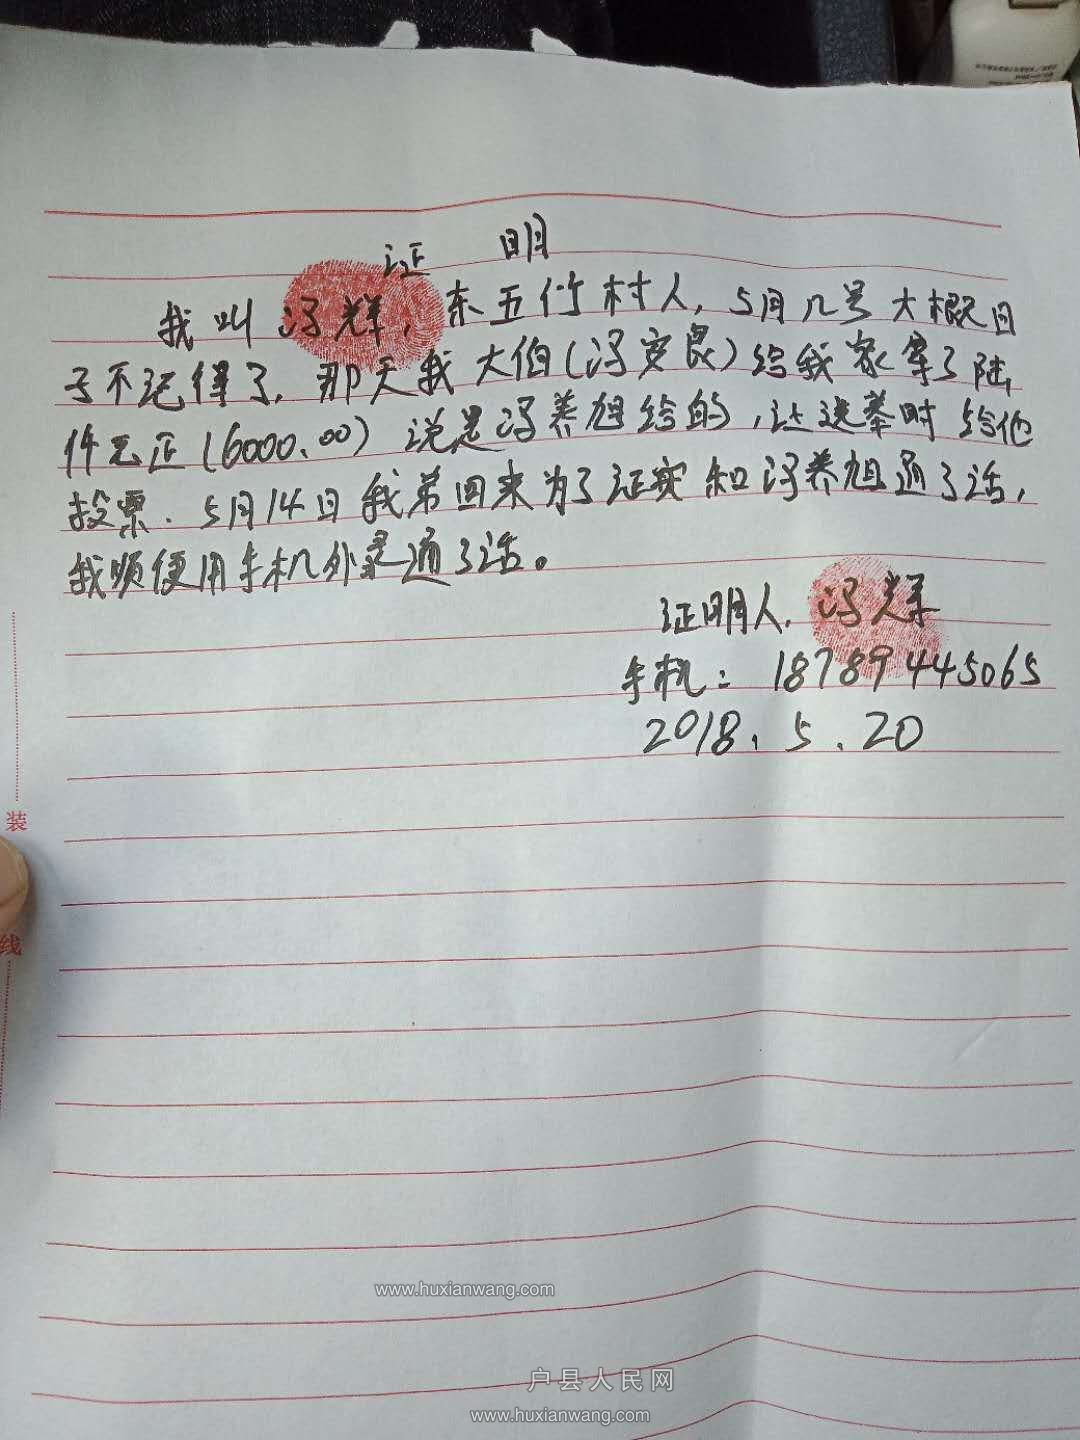 证 明
我叫冯辉,东五竹村人,5月几号大概日
子不记得了.那天我大伯(冯安良)给我家拿了陆
仟元正(6000.00)说是冯养旭给的,让选举时给他
投票.5月14日我弟回来为了证实和冯养旭通了话,
我顺便用手机外录通了话。
证明人.冯辉
手机:18789445065
2018.5.20
装
线
www.huxianwang.com
户县人民网
www.huxianwang.com